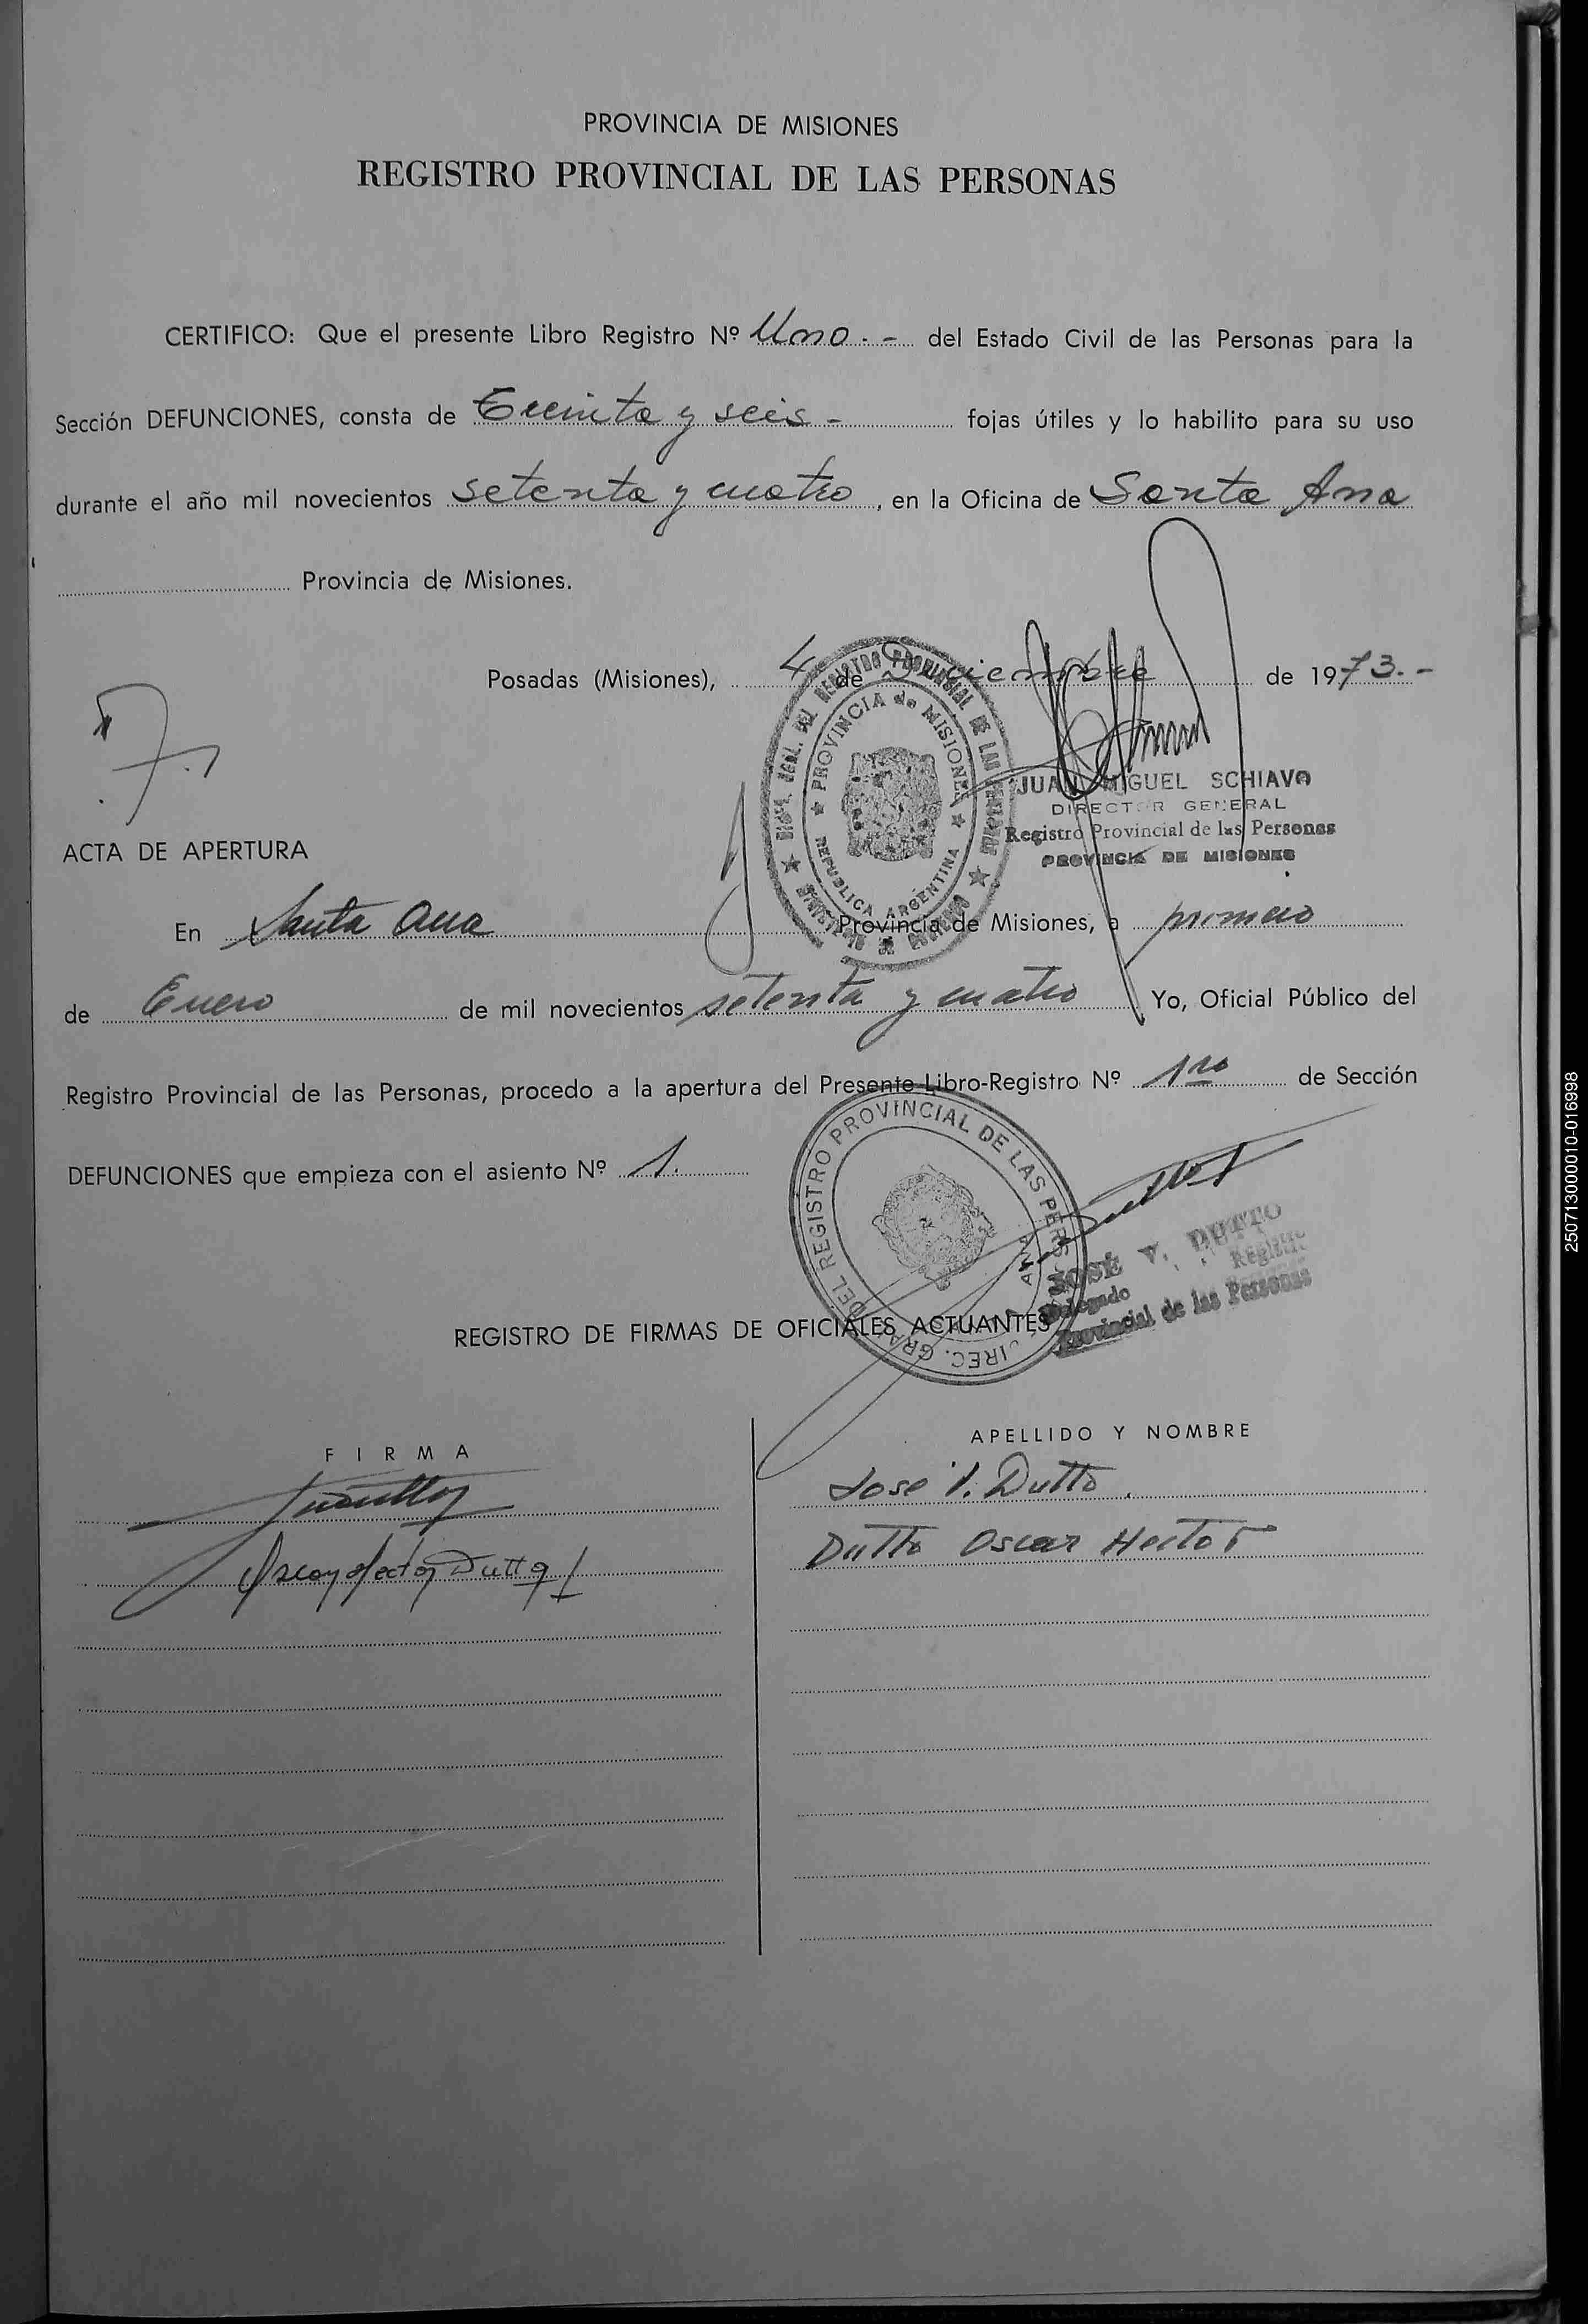 PROVINCIA DE MISIONES
REGISTRO PROVINCIAL DE LAS PERSONAS
CERTIFICO: Que el presente Libro Registro Nº Uno.- del Estado Civil de las Personas para la
Sección DEFUNCIONES, consta de Treinta y seis - fojas útiles y lo habilito para su uso
durante el año mil novecientos setenta y cuatro, en la Oficina de Santa Ana
Provincia de Misiones.
Posadas (Misiones), 4 de Diciembre de 1973.-
PROVINCIA de MISIONES
REPUBLICA ARGENTINA
JUAN MIGUEL SCHIAVO
DIRECTOR GENERAL
Registro Provincial de las Personas
PROVINCIA DE MISIONES
ACTA DE APERTURA
En Santa Ana Provincia de Misiones, a primero
de Enero de mil novecientos setenta y cuatro Yo, Oficial Público del
Registro Provincial de las Personas, procedo a la apertura del Presente Libro-Registro Nº 1ro de Sección
DEFUNCIONES que empieza con el asiento Nº 1.
DIREC. GRAL DEL REGISTRO PROVINCIAL DE LAS PERSONAS
JOSÉ V. DUTTO
Delegado Registro
Provincial de las Personas
REGISTRO DE FIRMAS DE OFICIALES ACTUANTES
FIRMA
APELLIDO Y NOMBRE
José V. Dutto.
Oscar Hector Dutto
Dutto Oscar Hector
250713000010-016998